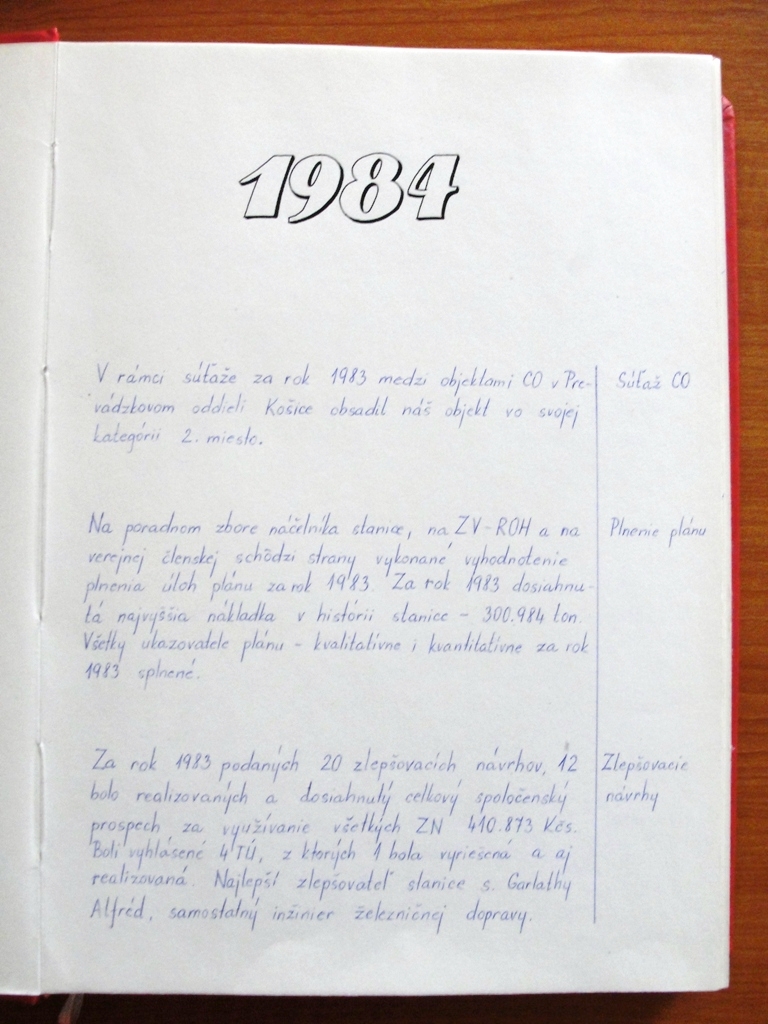 1984
V rámci súťaže za rok 1983 medzi objektami CO v Pre-
vádzkovom oddieli Košice obsadil náš objekt vo svojej
kategórii 2. miesto.
Súťaž CO
Na poradnom zbore náčelníka stanice, na ZV-ROH a na
verejnej členskej schôdzi strany vykonané vyhodnotenie
plnenia úloh plánu za rok 1983. Za rok 1983 dosiahnu-
tá najvyššia nákladka v histórii stanice - 300.984 ton.
Všetky ukazovatele plánu - kvalitatívne i kvantitatívne za rok
1983 splnené.
Plnenie plánu
Za rok 1983 podaných 20 zlepšovacích návrhov, 12
bolo realizovaných a dosiahnutý celkový spoločenský
prospech za využívanie všetkých ZN 410.873 Kčs.
Boli vyhlásené 4 TÚ, z ktorých 1 bola vyriešená a aj
realizovaná. Najlepší zlepšovateľ stanice s. Garlathy
Alfréd, samostatný inžinier železničnej dopravy.
Zlepšovacie
návrhy